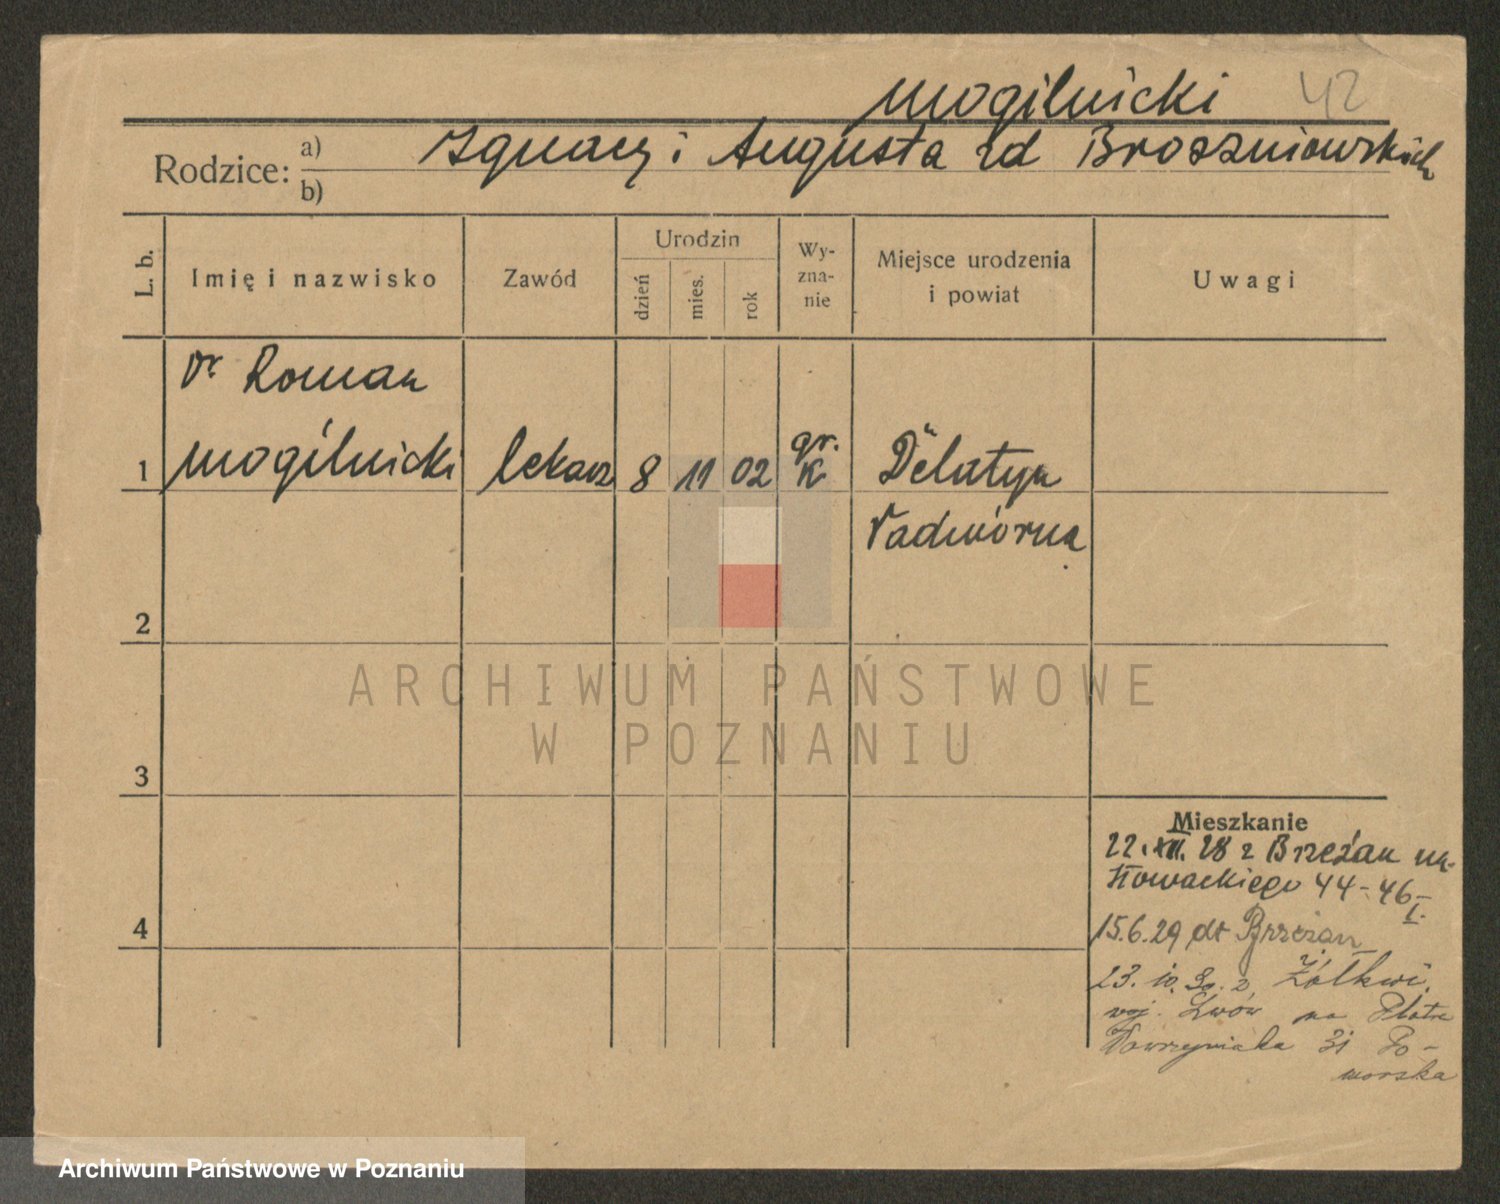 Mogilnicki 42
Rodzice: a) Ignacy i Augusta zd Broszniowskich
b)
L. b. Imię i nazwisko Zawód Urodzin dzień mies. rok Wy-zna-nie Miejsce urodzenia i powiat Uwagi
Dr Roman
1 Mogilnicki lekarz 8 11 02 gr. K Delatyn
Nadwórna
2
ARCHIWUM PAŃSTWOWE
W POZNANIU
3
Mieszkanie
22. XII. 28 z Brzeżan na
Słowackiego 44-46
I.
4
15.6.29 do Brzeżan
23. 10. 30. z Żółkwi,
woj. Lwów na Piotra
Wawrzyniaka 31 Po-
morska
Archiwum Państwowe w Poznaniu